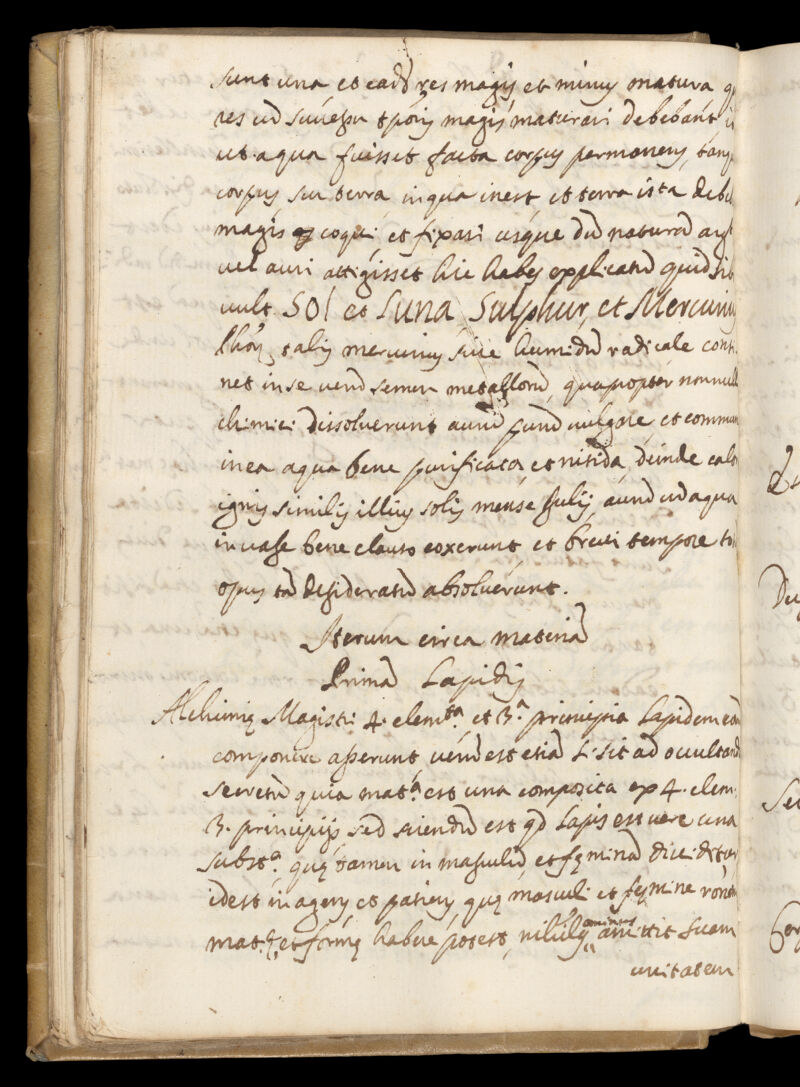 sunt una et ead̃ res magis et minus matura
res cũ successu tp̃oris magis maturari debebant
ut aqua fuisset facta corpus permanens, tanq
corpus sui terra in qua inest et terra ista deb
magis coqui et fixari usque dũ naturã arg
vel auri attigisset hic habes explicatũ quid sib
vult Sol et Luna, Sulphur, et Mercurius
talis mercurius sive humidũ radicale conti
net in se verũ semen metallorũ, quapropter nonnull
chimici dissolverunt aurũ purũ vulgare et commun
in ea aqua bene purificata et nitida, deinde calo
ignis similis illius solis mense Julij, aurũ cũ aqua
in vase bene clauso coxerunt et brevi tempore to
opus tã desideratũ absolverunt.
Iterum circa materiã
Primã Lapidis
Alchimię Magistri 4. elemta et 3.a principia Lapidem
componere asserunt verũ est etiã sit ad occultand
secretũ quia mat.a est una composita ex 4. elem.
3. principijs sed sciendũ est qd Lapis est vere una
subst.a quę tamen in masculũ et fęminã dividitur
idest in agens et patiens quę masculi et fęmine rõnem
mat.ę et formę habere potest, nihil amittit suam
unitatem
De